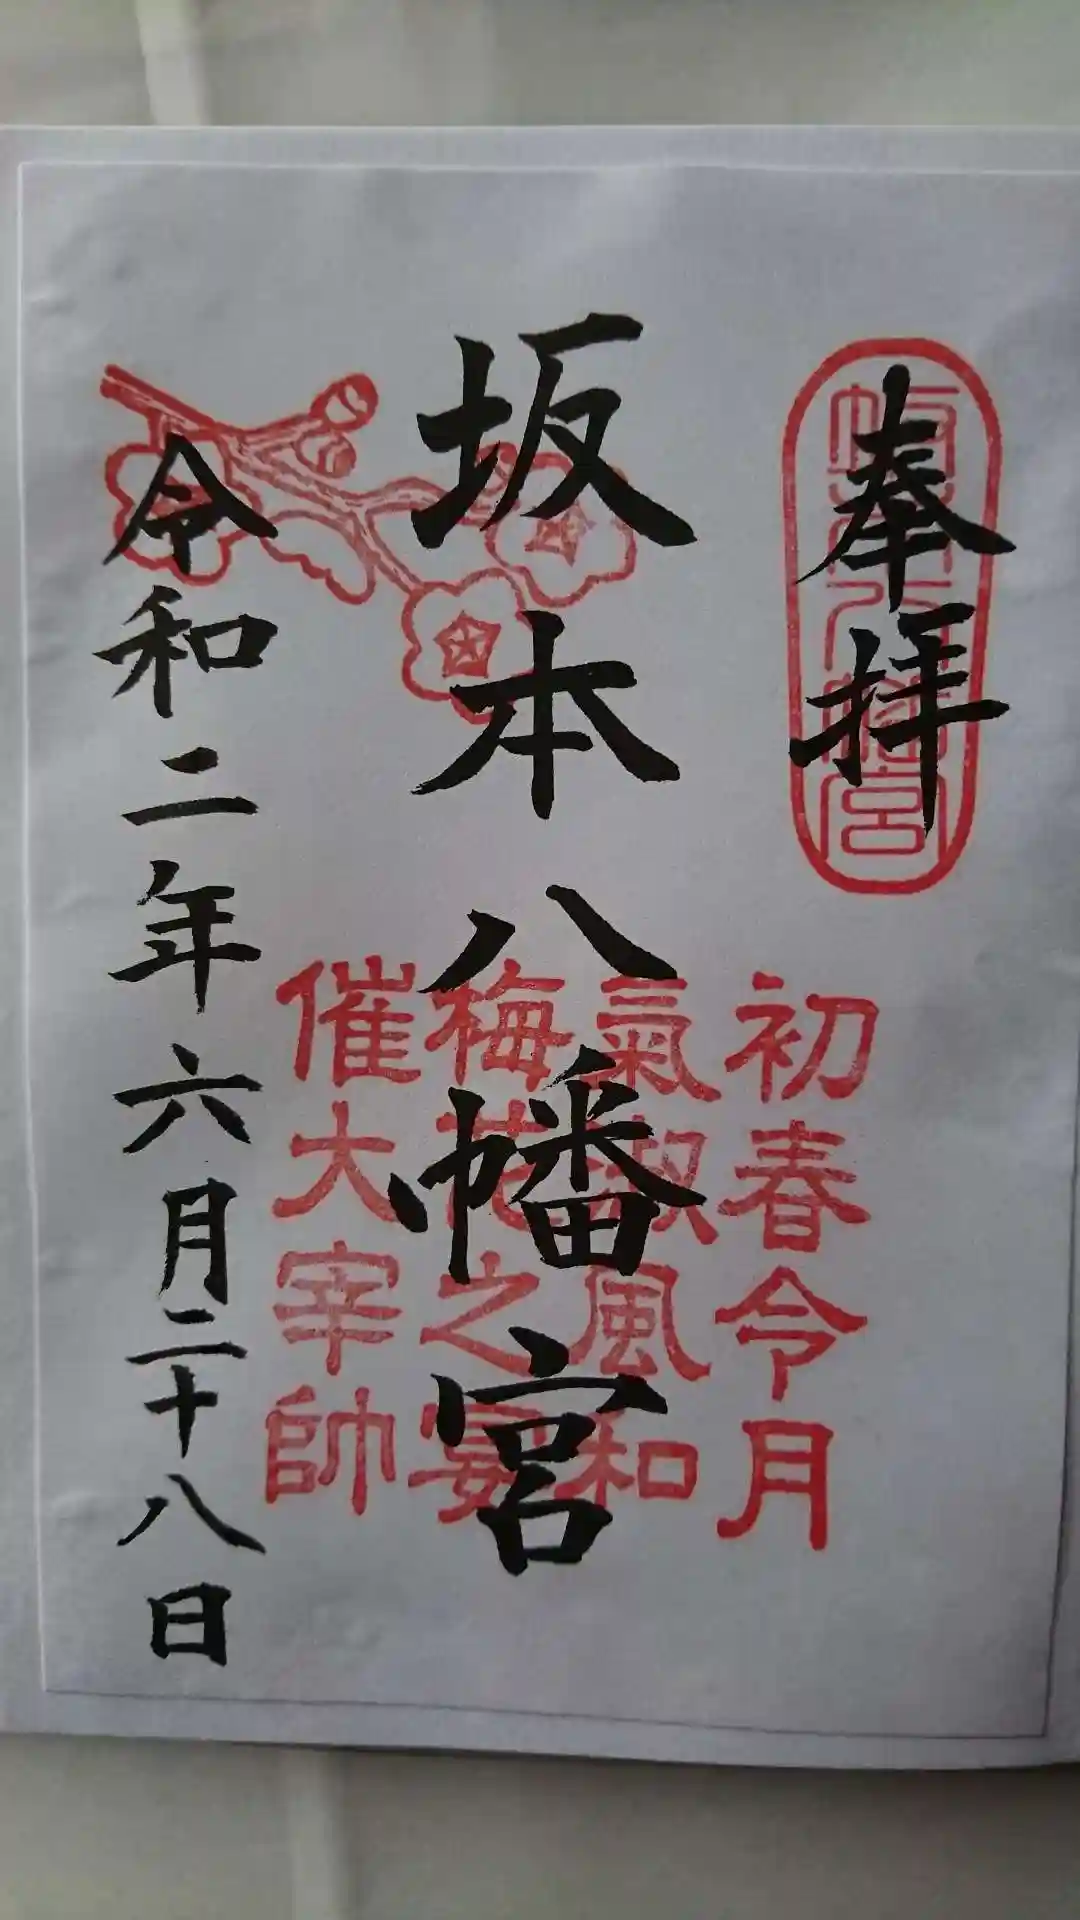 奉拝
坂本八幡宮
坂本八幡宮
令和二年六月二十八日
初春令月
氣淑風和
梅花之宴
催大宰帥